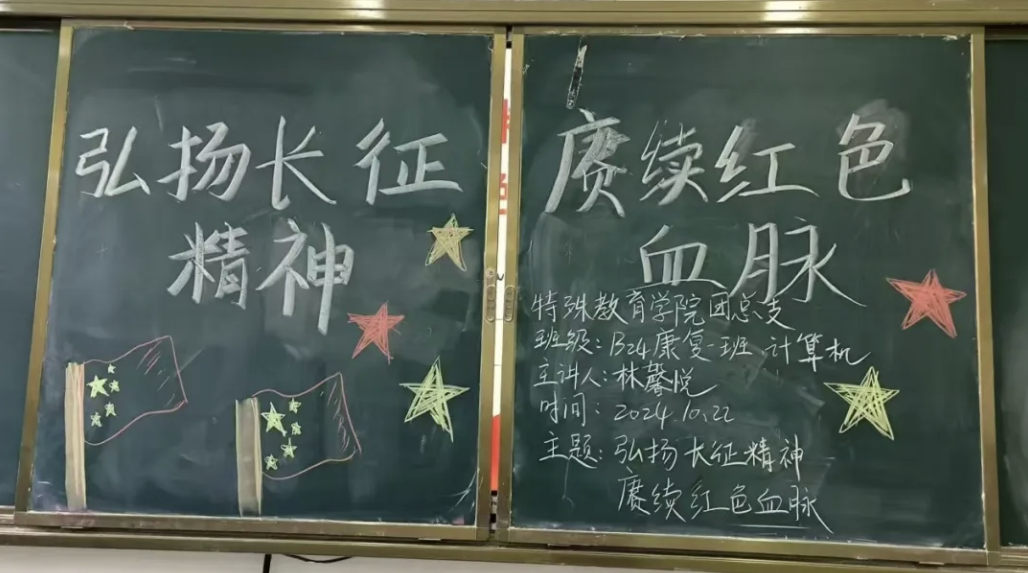 弘扬长征
精神
赓续红色
血脉
特殊教育学院团总支
班级：B24康复一班 计算机
主讲人：林馨悦
时间：2024.10.22
主题：弘扬长征精神
赓续红色血脉